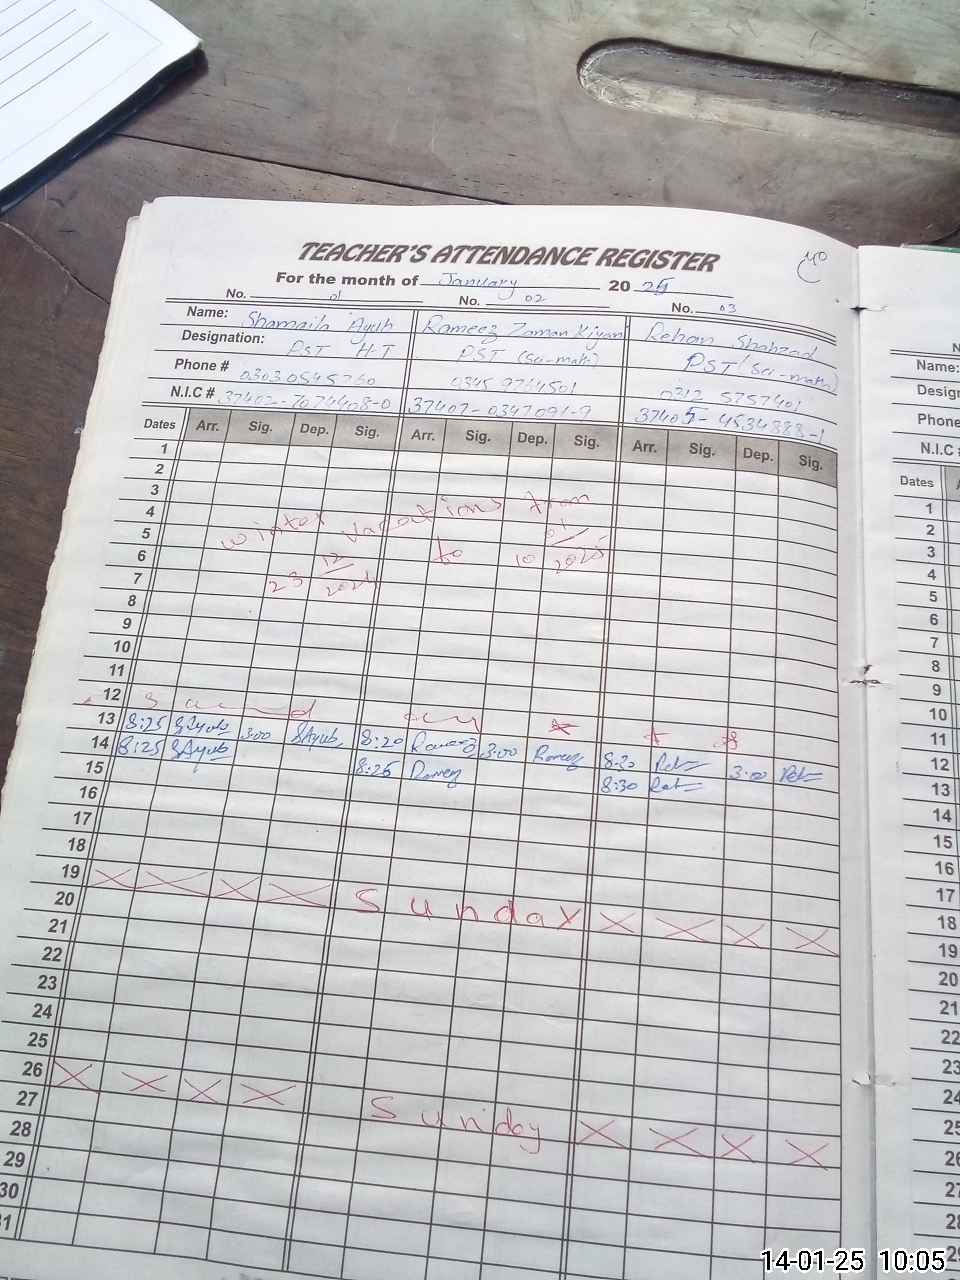 TEACHER'S ATTENDANCE REGISTER
For the month of January 20 25
No. 01 No. 02 No. 03
Name: Shamaila Ayub Rameez Zaman Kiyani Rehan Shahzad
Designation: PST H.T PST (Sci-math) PST (Sci-math)
Phone # 0303 0545760 0345 9764501 5757401
N.I.C # 37402-7074408-0 37407-0347091-9 37405-4534383-1
Dates Arr. Sig. Dep. Sig. Arr. Sig. Dep. Sig. Arr. Sig. Dep. Sig.
1
2
3
4
winter vacations from
5
6
23 12/2024 to 10 01/2025
7
8
9
10
11
12
13 8:25 SAyub 3:00 SAyub 8:20 Rameez 3:00 Rameez 8:20 3:00
14 8:25 SAyub 8:25 Rameez 8:30
15
16
17
18
19 Sunday
20
21
22
23
24
25
26 Sunday
27
28
29
30
31
Name:
Desig
Phone
N.I.C
Dates
1
2
3
4
5
6
7
8
9
10
11
12
13
14
15
16
17
18
19
20
21
22
23
24
25
26
27
28
29
14-01-25 10:05